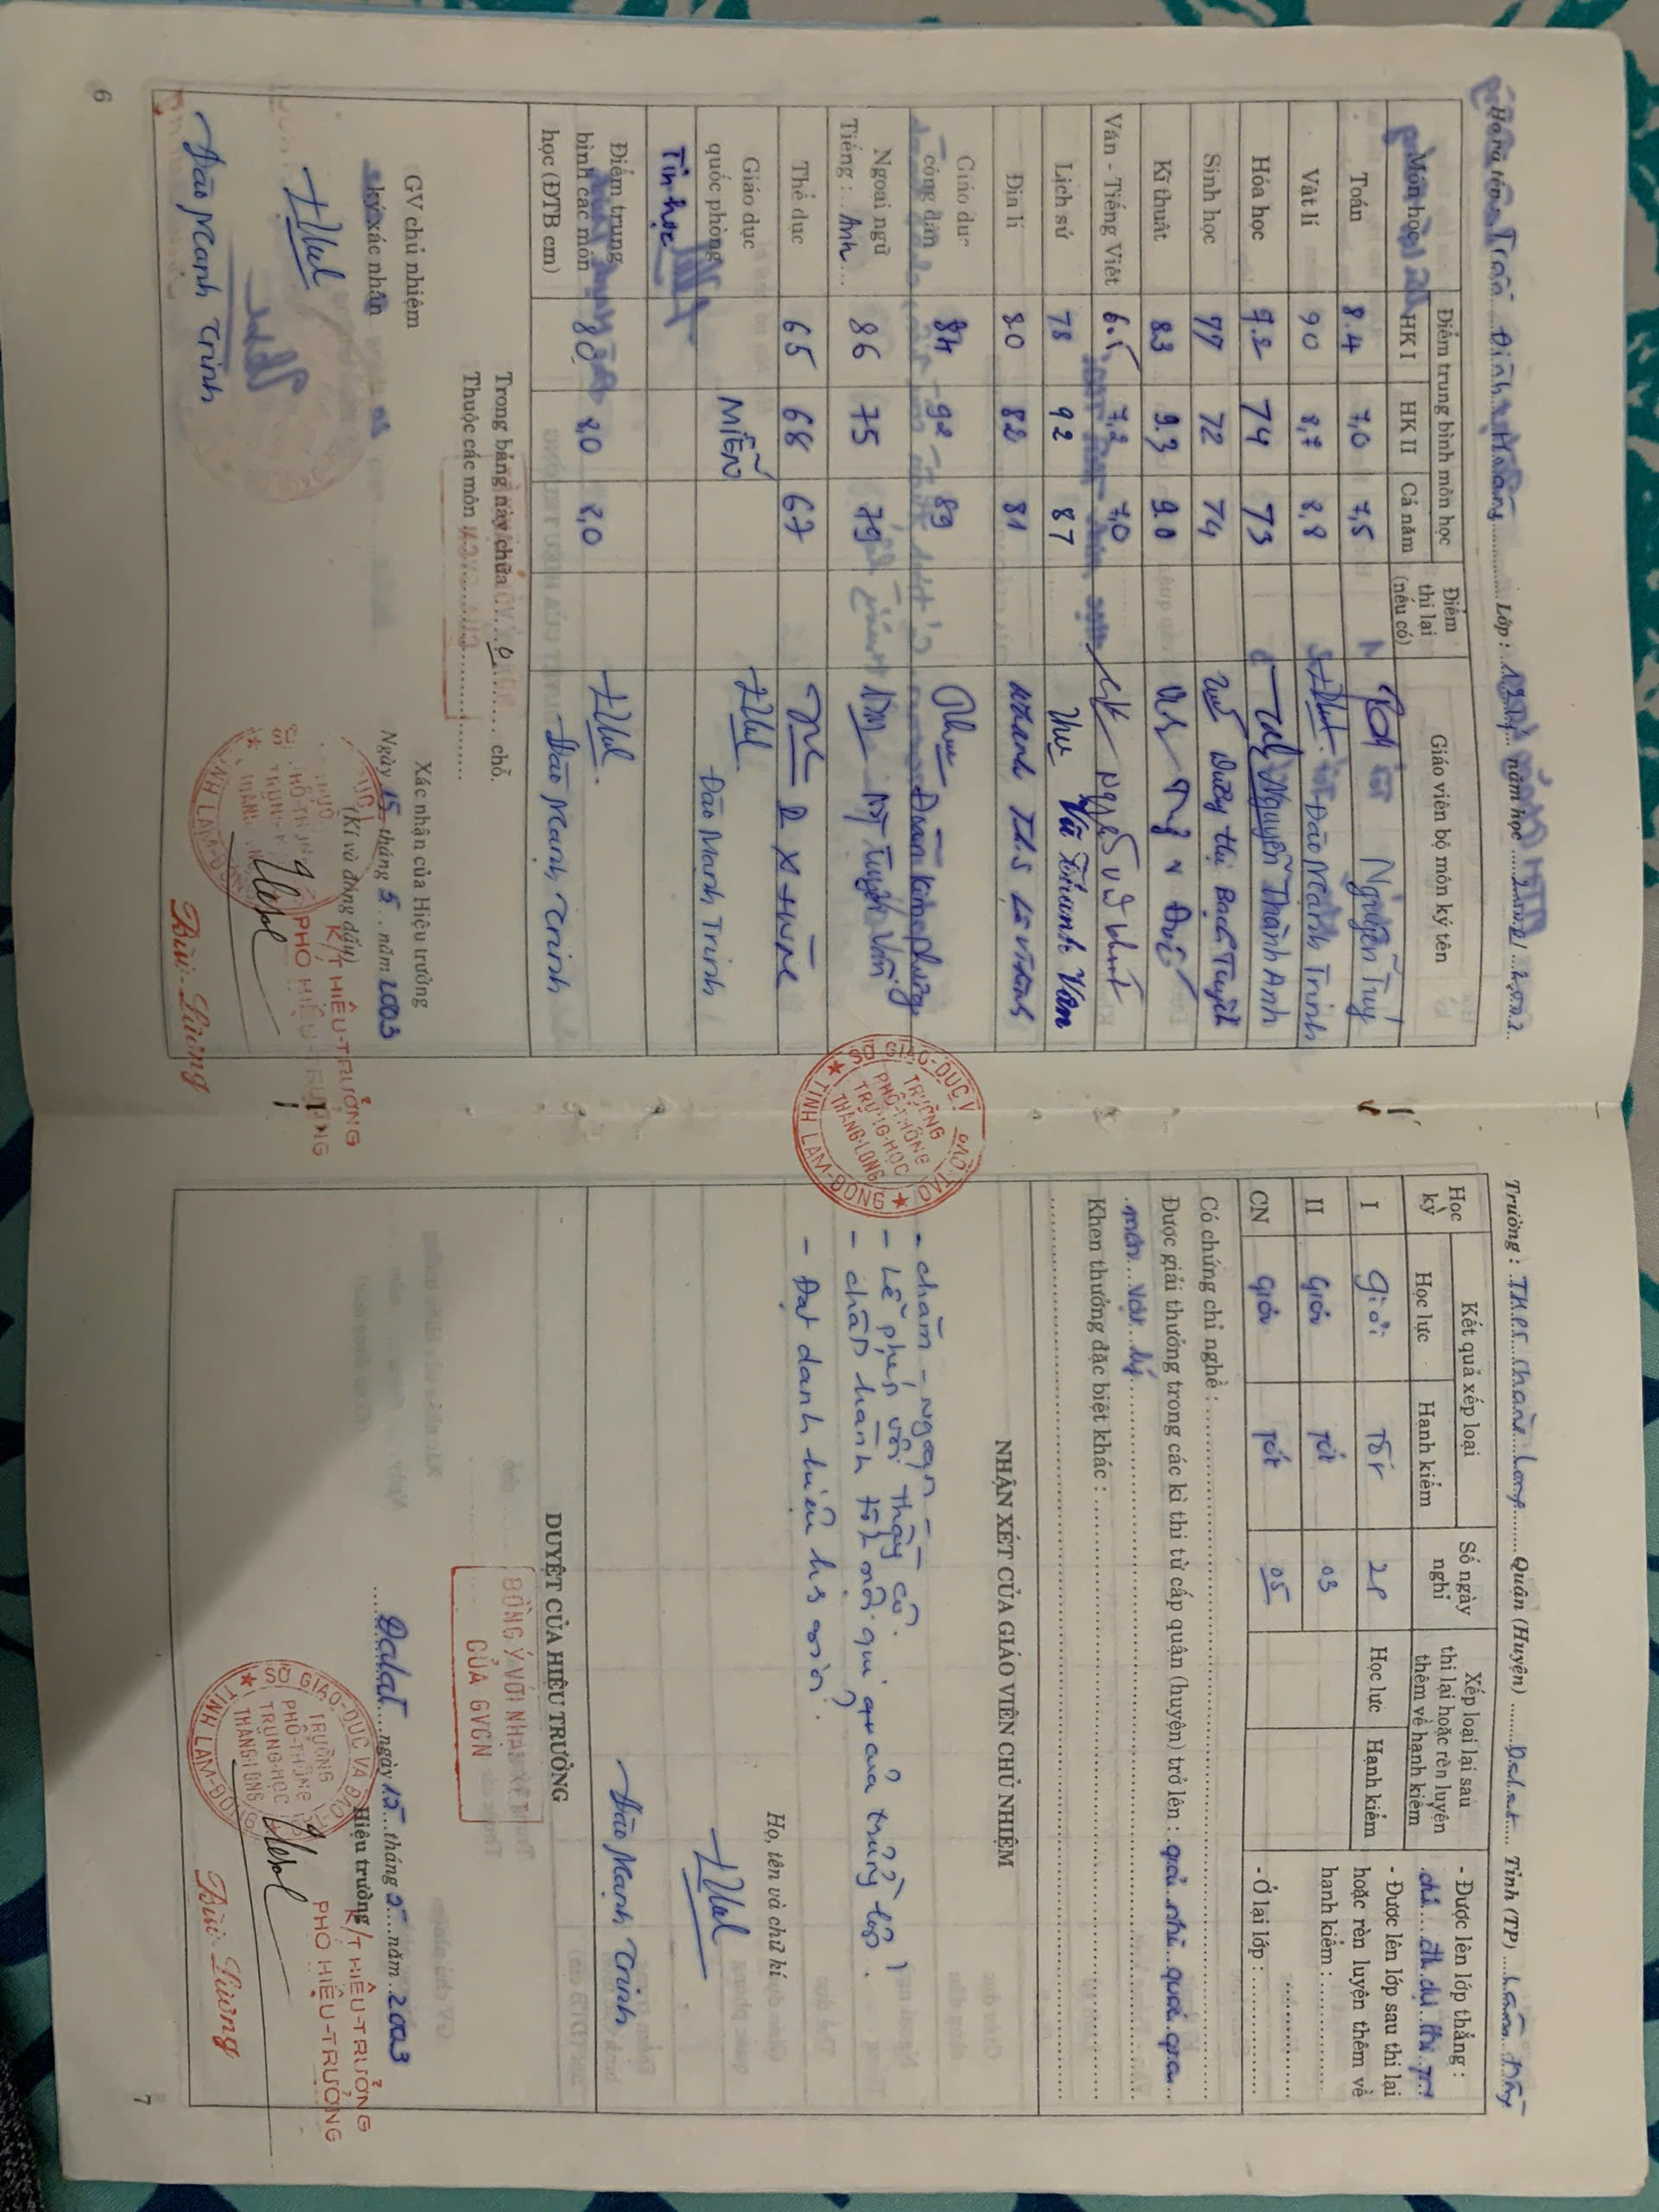 Họ và tên: Trần Đình Hoàng Lớp: năm học 2002
Môn học
Điểm trung bình môn học
Điểm thi lại (nếu có)
Giáo viên bộ môn ký tên
HK I HK II Cả năm
Toán 8.4 7,0 7,5 Nguyễn Tuý
Vật lí 90 8,7 8,8 Đào Mạnh Trinh
Hóa học 7.2 74 73 Nguyễn Thành Anh
Sinh học 77 72 74 Dương Thị Bạch Tuyết
Kĩ thuật 83 9.3 9.0
Văn - Tiếng Việt 6.5 7,2 7,0
Lịch sử 78 92 87 Vũ Vân
Địa lí 80 82 81
Giáo dục công dân 84 92 89 Đoàn Kim Phượng
Ngoại ngữ
Tiếng: Anh 86 75 79
Thể dục 65 68 67
Giáo dục quốc phòng MIỄN Đào Mạnh Trinh
Tin học
Điểm trung bình các môn học (ĐTB cm) 80 8,0 8,0 Đào Mạnh Trinh
Trong bảng này chữa 0 chỗ.
Thuộc các môn
GV chủ nhiệm
ký xác nhận
Đào Mạnh Trinh
Xác nhận của Hiệu trưởng
Ngày 15 tháng 5 năm 2003
(Kí và đóng dấu)
K/T HIỆU-TRƯỞNG
PHÓ HIỆU-TRƯỞNG
Bùi Lương
6
SỞ GIÁO-DỤC VÀ ĐÀO TẠO
TRƯỜNG
PHỔ-THÔNG
TRUNG-HỌC
THĂNG-LONG
TỈNH LÂM-ĐỒNG
Trường: T.H.P.T Thăng Long Quận (Huyện) Dalat Tỉnh (TP) Lâm Đồng
Học kỳ
Kết quả xếp loại
Số ngày nghỉ
Xếp loại lại sau thi lại hoặc rèn luyện thêm về hạnh kiểm
Học lực Hạnh kiểm Học lực Hạnh kiểm
I Giỏi Tốt
II Giỏi Tốt 03
CN Giỏi Tốt 05
- Được lên lớp thẳng:
- Được lên lớp sau thi lại hoặc rèn luyện thêm về hạnh kiểm:
- Ở lại lớp:
Có chứng chỉ nghề:
Được giải thưởng trong các kì thi từ cấp quận (huyện) trở lên: giải nhì quốc gia
môn Vật lý
Khen thưởng đặc biệt khác:
NHẬN XÉT CỦA GIÁO VIÊN CHỦ NHIỆM
- Chăm - ngoan
- Lễ phép với thầy cô.
- Chấp hành tốt nội qui của trường lớp.
- Đạt danh hiệu hs giỏi.
Họ, tên và chữ kí
Đào Mạnh Trinh
DUYỆT CỦA HIỆU TRƯỞNG
ĐỒNG Ý VỚI NHẬN XÉT
CỦA GVCN
Dalat ngày 15 tháng 5 năm 2003
Hiệu trưởng
K/T HIỆU-TRƯỞNG
PHÓ HIỆU-TRƯỞNG
SỞ GIÁO-DỤC VÀ ĐÀO TẠO
TRƯỜNG
PHỔ-THÔNG
TRUNG-HỌC
THĂNG-LONG
TỈNH LÂM-ĐỒNG
Bùi Lương
7